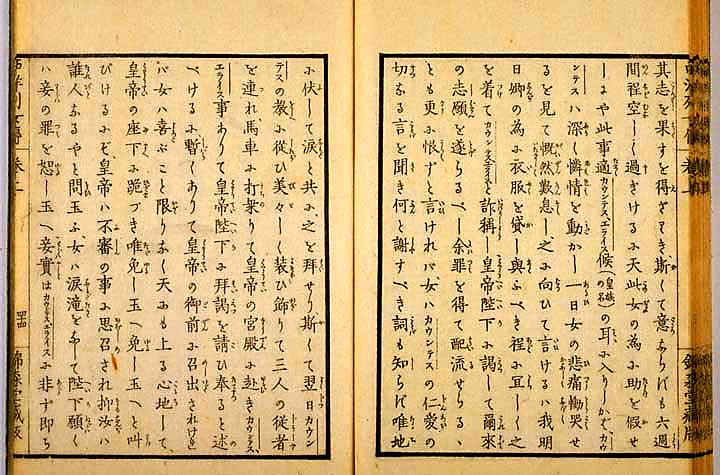 其志を果すを得ざりき、斯して意ならずも六週
間程空しく過ぎけるに天此女の為に助を假せ
しにや此事適カウンテス、エライス候（皇族の名）の耳に入りしかバ、カウ
ンテスハ深く憐情を動かし一日女の悲痛慟哭せ
るを見て慨然歎息し之に向ひて言けるハ我明
日卿の為に衣服を貸し與ふべき程に宜しく之
を着てカウンテスエライスと詐稱し皇帝陛下に謁して爾來
の志願を遂らるべし余罪を得て配流せらるゝ
とも更に恨ずと言けれバ、女ハカウンテスの仁愛の
切なる言を聞き何と謝すべき詞も知らず唯地
に伏して涙と共に之を拜せり斯して翌日カウン
テスの教に從ひ美々しく装ひ飾りて三人の從者
を連れ、馬車に打乗りて皇帝の宮殿に赴きカウンテス、
エライス事ありて皇帝陛下に拜謁を請ひ奉ると述
べけるに、暫くありて皇帝の御前に召出されけれ
バ女ハ喜ぶこと限りなく天にも上る心地して、
皇帝の座下に跪づき唯免し玉へ免し玉へと叫
びけるにぞ、皇帝ハ不審の事に思召され抑汝ハ
誰人なるやと問玉ふ、女ハ涙滝をなして陛下願く
ハ妾の罪を恕し玉へ妾實はカウンテスエライスに非ず即ち
列女傳 卷二
四
錦森堂藏版